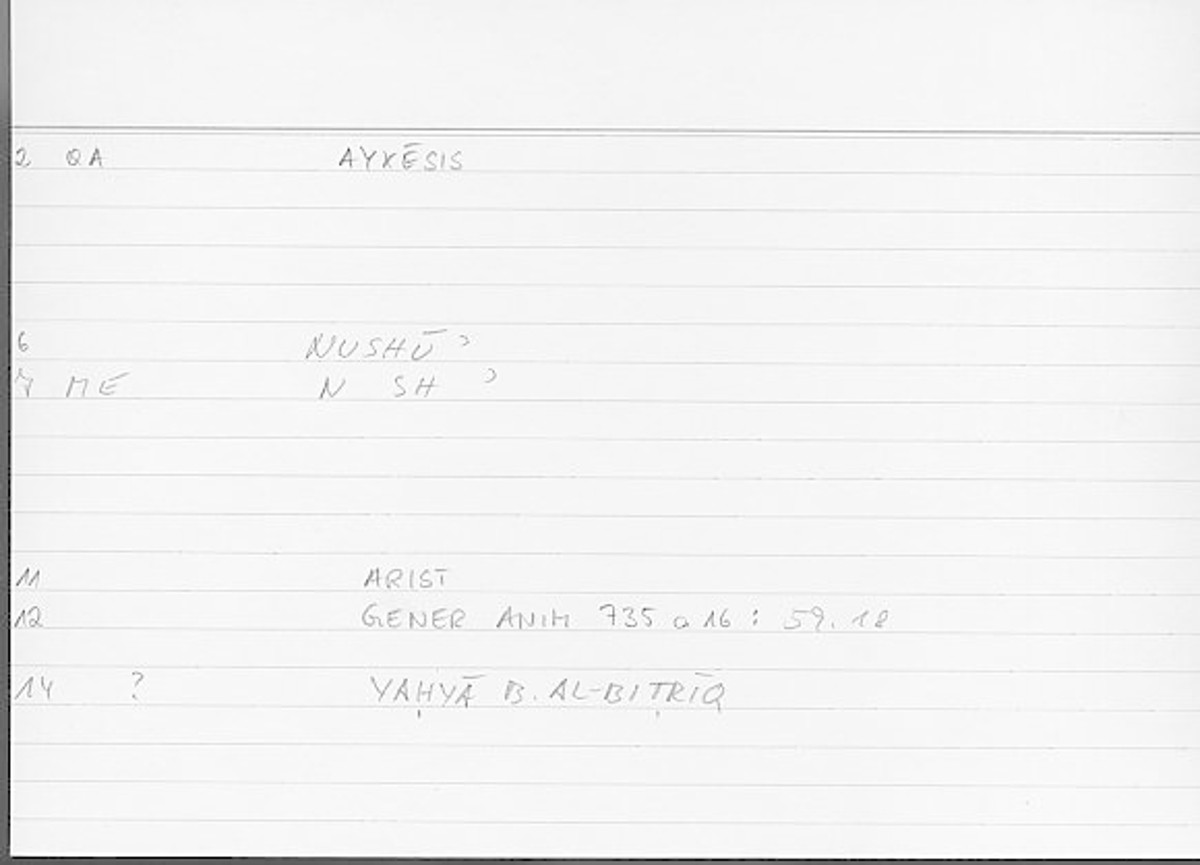 2 QA AYXĒSIS
6 NUSHŪʾ
7 ME N SH ʾ
11 ARIST
12 GENER ANIM 735 a 16 : 59.18
14 ? YAḤYĀ B. AL-BIṬRĪQ